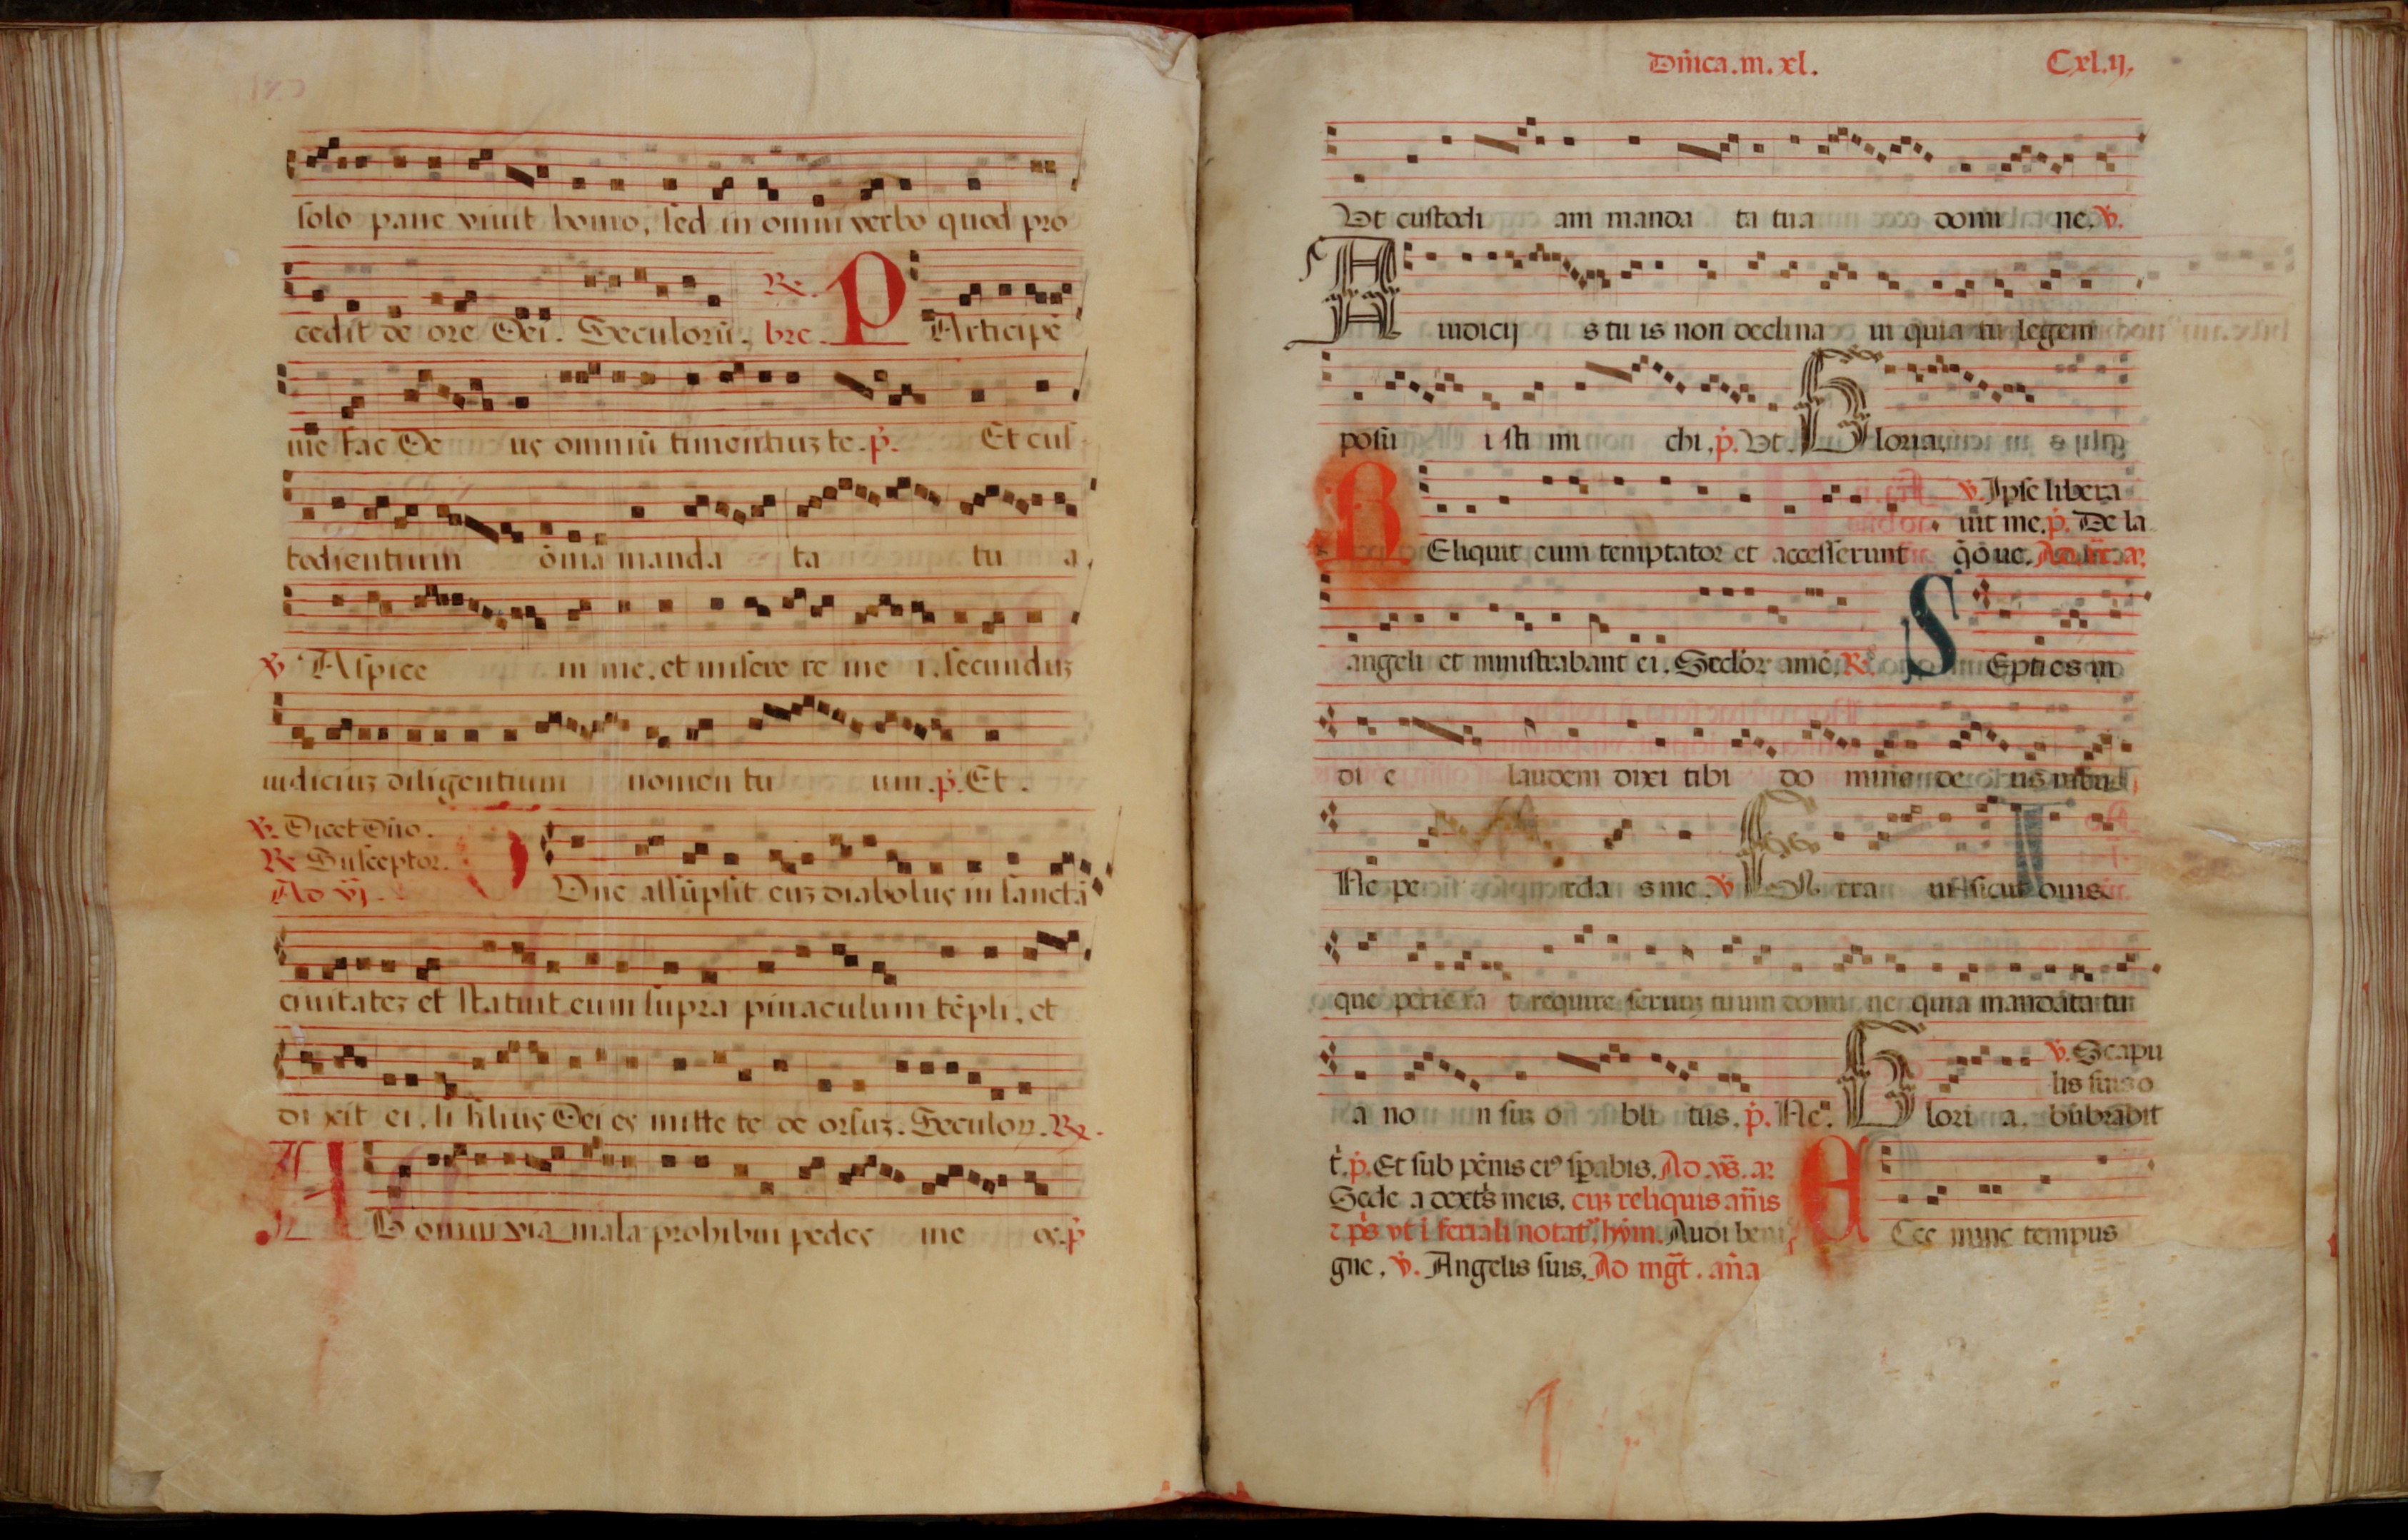 solo pane viuit homo, sed in omni verbo quod pro
cedit de ore Dei. Seculorū. bre. ℟. PArticipē
me fac De us omniū timentiuz te. p̄. Et cus
todientium ōnia manda ta tu a.
℣ Aspice in me. et misere re me i. secunduz
iudiciuz diligentium nomen tu um. p̄. Et.
℣. Dicet Dn̄o.
℞ Susceptor.
Ad vj.
Tunc assūpsit euz diabolus in sanctā
ciuitatez et statuit eum supra pinaculum tēpli, et
dixit ei. si filius Dei es mitte te de orsuz. Seculoꝝ. ℞.
AB omni via mala prohibui pedes me os. p̄
Dn̄ica. in. xl.
Cxl.ij.
Vt custodi am manda ta tua domi ne. ℣.
A iudicijs tu is non declina ui quia tu legem
posu i sti mi chi. p̄. Vt. Gloria.
REliquit eum temptator et accesserunt
℣. Ipse libera
uit me. p̄. De la
q̄o ue.
angeli et ministrabant ei. Seclor amē. ℞. SEpties in
di e laudem dixi tibi do mine de us
Ne pe rda s me. ℣ Erra ui sicut ouis
que perie ra t require seruuz tuum domi ne quia mandata tu
a no n suz o bli tus. p̄. Ne. Glori a.
℣. Scapu
lis suis o
būbrabit
t. p̄. Et sub pēnis eiꝰ sꝑabis. Ad. vs̄. ar
Sede a dextr̄s meis. cuz reliquis an̄is
⁊ ps̄ vt i feriali notatʳ. hym. Audi beni
gne. ℣. Angelis suis. Ad mḡt. an̄a
ECce nunc tempus